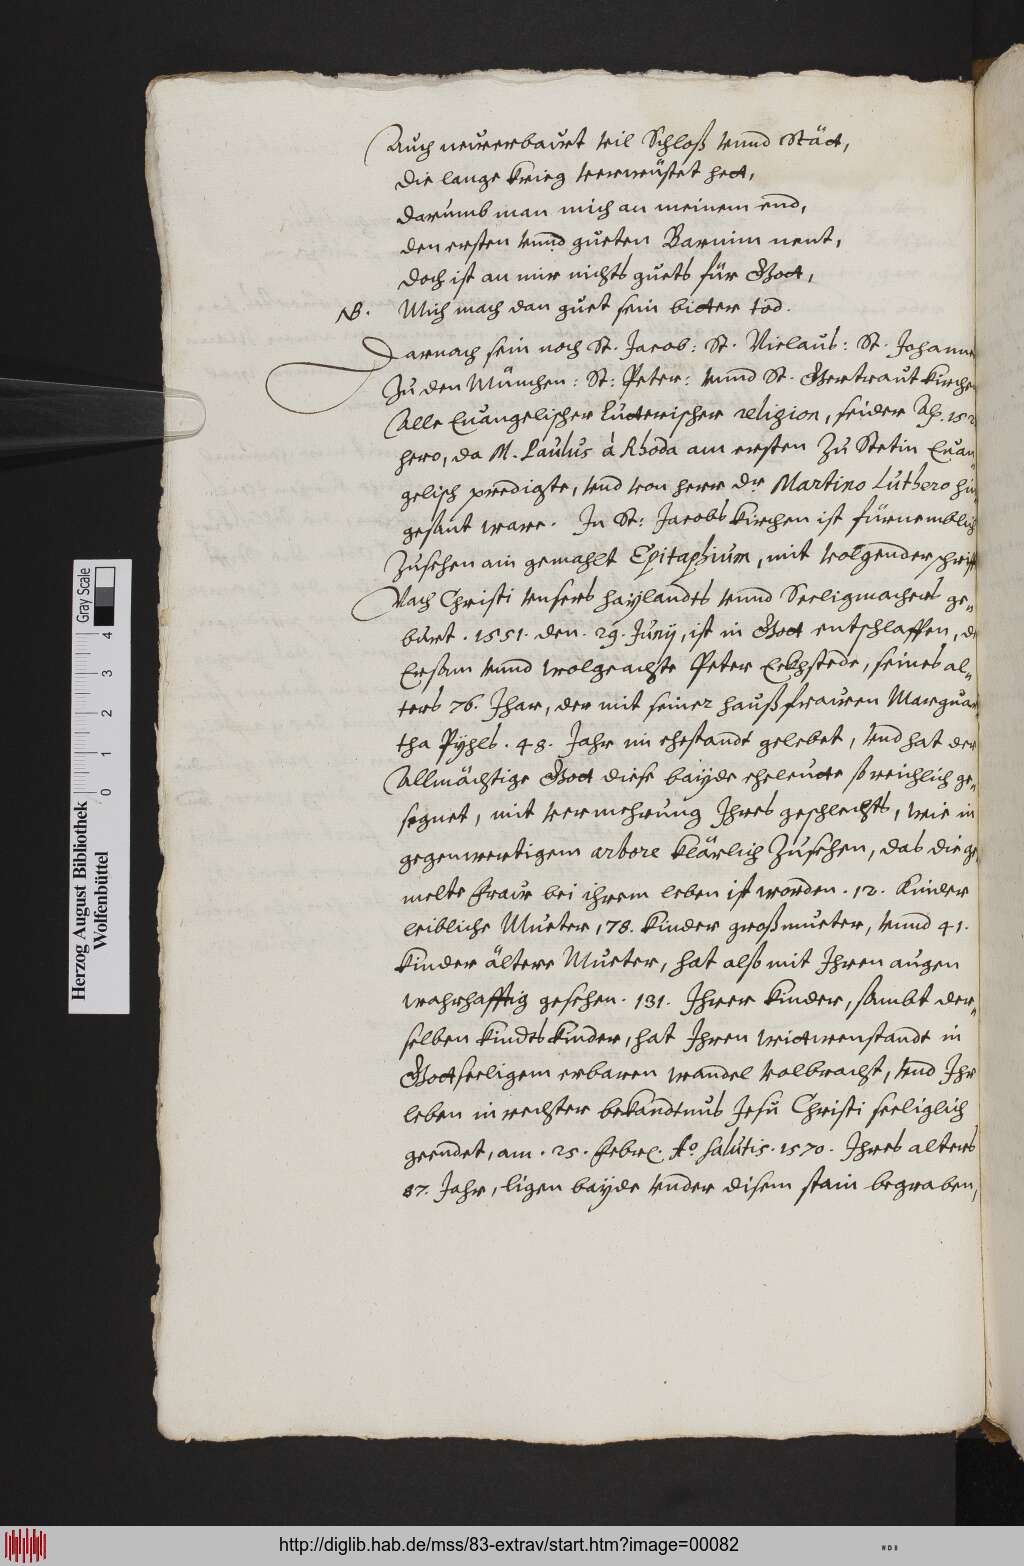 Auch neuerbaurt vil Schloß vnnd Städt,
die lange krieg verwüstet hett,
darumb man mich an meinem end,
den ersten vnnd gueten Barnim nent,
doch ist an mir nichts guets für Gott,
NB. Mich mach dan guet sein bitter tod.
Darnach sein noch St. Jacob: St. Niclaus: St. Johanne
Zu den München: St: Peter: vnnd St. Gertraut kirche
Alle Euangelischer Lutterischer religion, seider Ao. 152
hero, da M. Paulus á Rhoda am ersten Zu Stetin Euan=
gelisch predigte, vnd von herr dr. Martino Luthero hin
gesant ware. In St: Jacobs kirchen ist fürnemblich
Zusehen ain gemahlt Epitaphium, mit volgender schrifft
Nach Christi vnsers haylandts vnnd Seeligmachers ge=
burt. 1551. den. 29. Junij, ist in Gott entschlaffen, de
Ersam vnnd wolgeachte Peter Eckhstede, seines al=
ters 76. Jhar, der mit seiner haußfrauen Marguar
tha Pÿhls. 48. Jahr im ehestandt gelebet, vnd hat der
Allmächtige Gott diese baÿde eheleutte so reichlich ge=
segnet, mit vermehrung Jhres geschlechts, wie in
gegenwertigem arbore klärlich Zusehen, das die ge=
melte frauw bei ihrem leben ist worden. 12. Kinder
leibliche Mueter, 78. kinder großmueter, vnnd 41.
kinder ältere Mueter, hat also mit Jhren augen
wahrhafftig gesehen. 131. Jhrer kinder, sambt der=
selben kindtskinder, hat Jhren wittwenstandt in
Gottseeligem erbaren wandel volbracht, vnd Jhr
leben in rechter bekandtnus Jesu Christi seeliglich
geendet, am. 25. Febr. Ao. salutis. 1570. Jhres alters
87. Jahr, ligen bayde vnder disem stain begraben,
Herzog August Bibliothek
Wolfenbüttel
Gray Scale
0 1 2 3 4
http://diglib.hab.de/mss/83-extrav/start.htm?image=00082